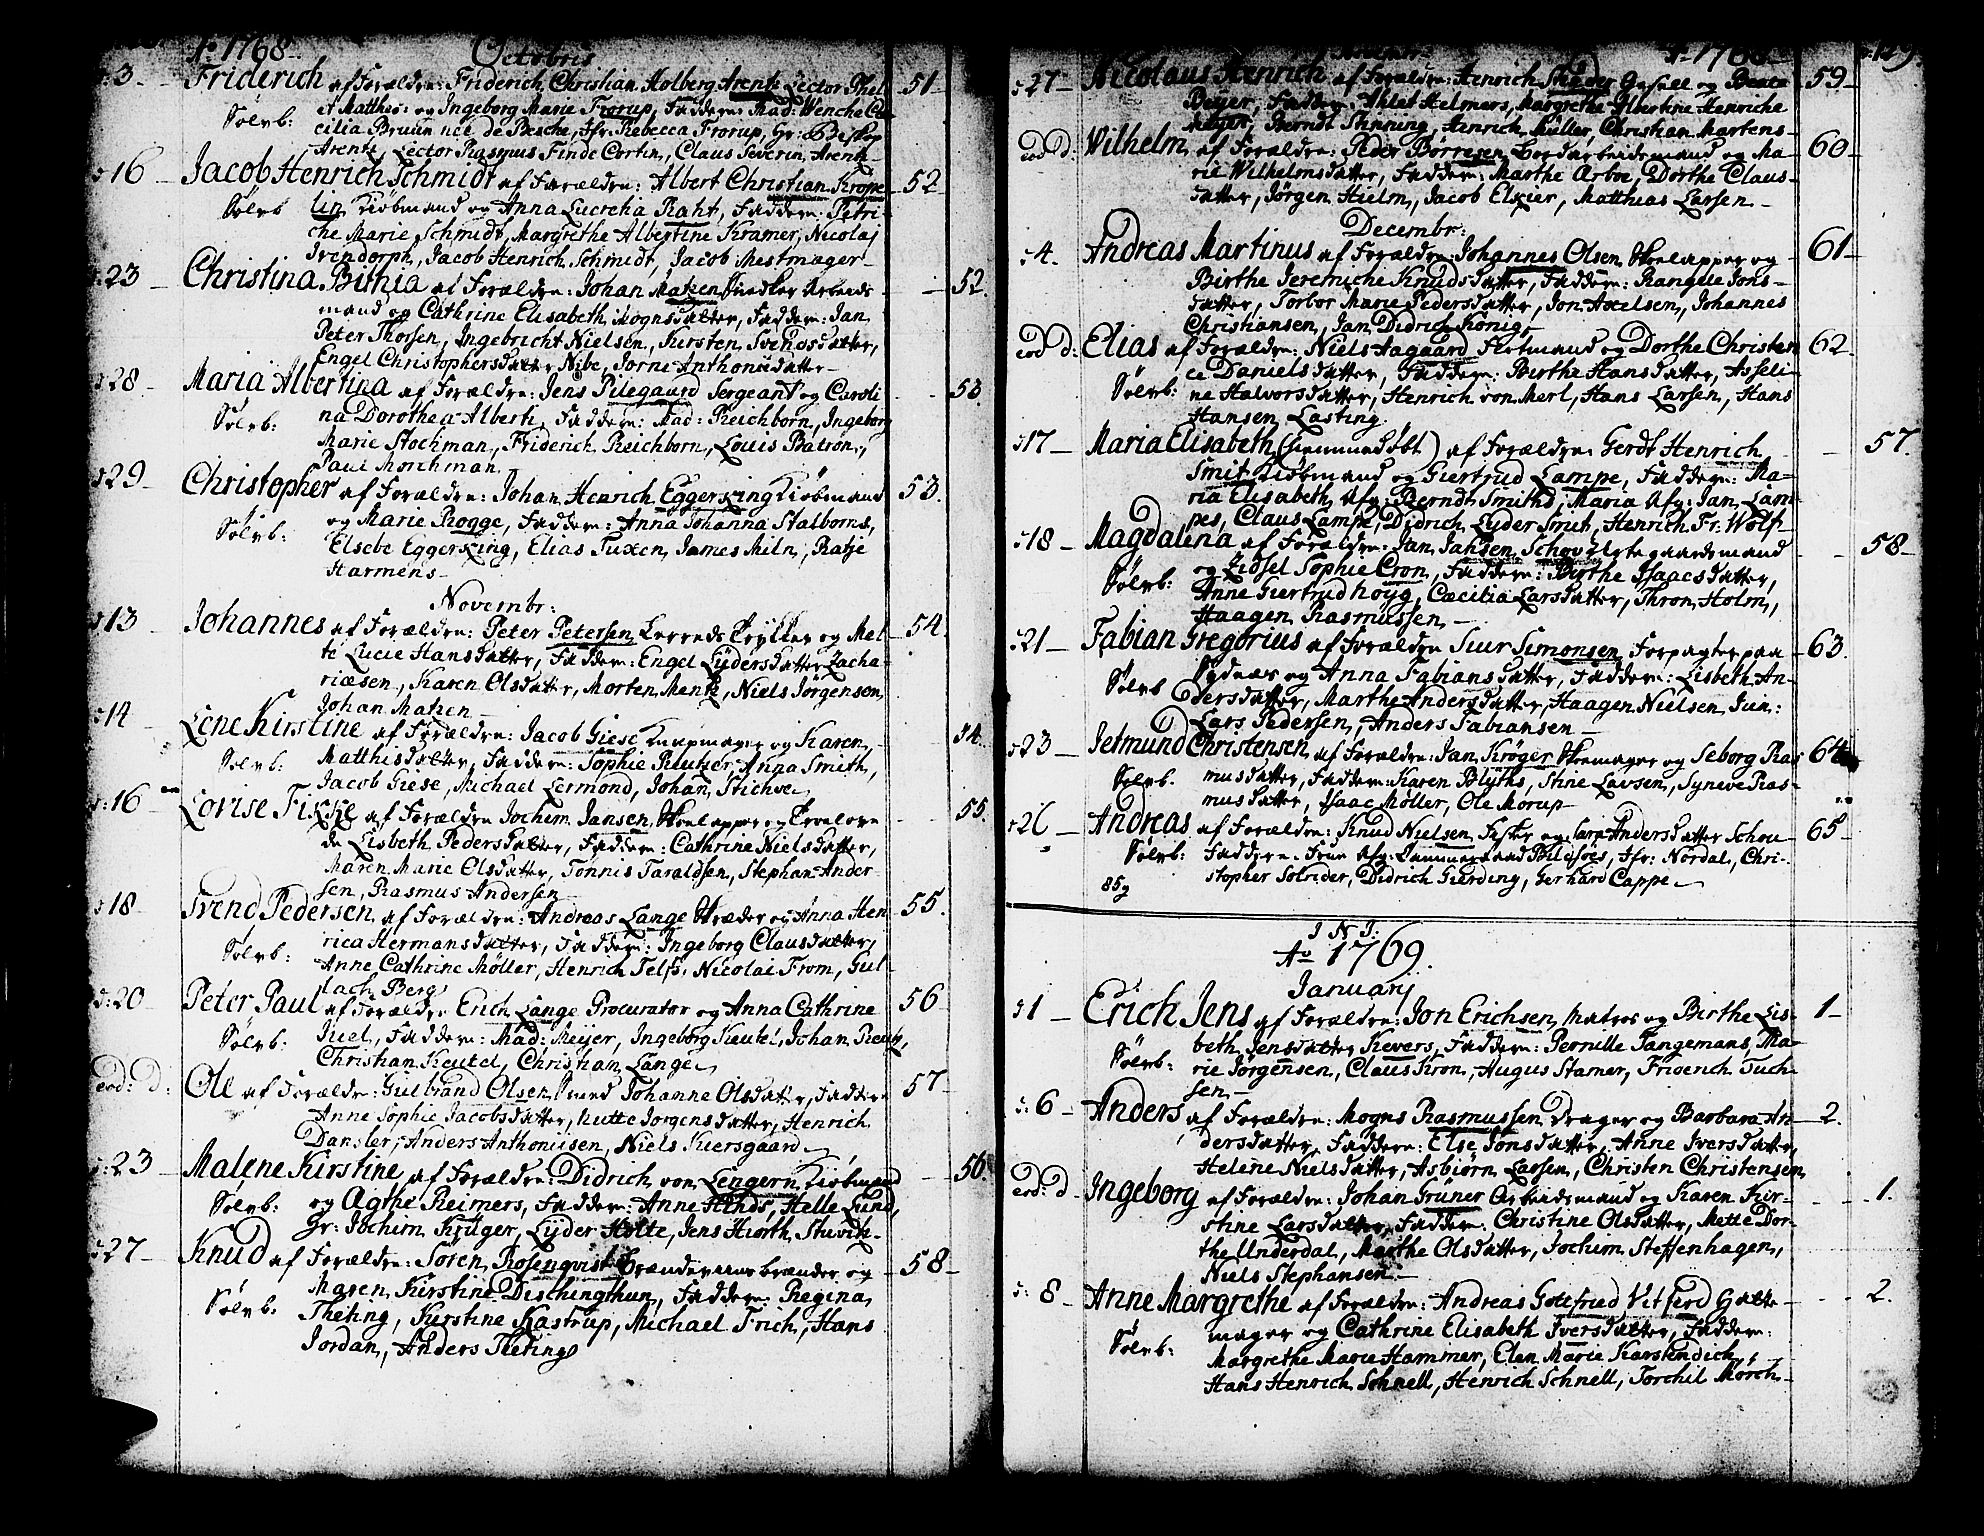 Ao 1768
Octobris
d: 3 Friderich af Forældre: Friderich Christian Holberg Arentz Lector Theol:
et Mathes: og Ingeborg Marie Frorup, Faddere: Mad: Wenche Cæ-
Sølvb: cilia Bruun née de Besche, Jfr: Rebecca Frorup, Hr: Biskop
Arentz, Lector Rasmus Finde Cortin, Claus Severin Arentz 51
d: 16 Jacob Henrich Schmidt af Forældre: Albert Christian Krope-
Sølvb lin Kiøbmand og Anna Lucretia Raht, Faddere: Petri-
che Marie Schmidt, Margrethe Albertine Kramer, Nicolaj
Irendorph, Jacob Henrich Schmidt, Jacob Mestmager 52
d: 23 Christina Bithia af Forældre: Johan Matzen Arbeids
mand og Cathrine Elisabeth Mognsdatter, Faddere: Jan
Peter Thorsen, Ingebricht Nielsen, Kirsten Svendsdatter,
Engel Christophersdatter Nibe, Jorne Anthoniidatter 52.
d: 28 Maria Albertina af Forældre: Jens Pilegaard Sergeant og Caroli-
Sølvb: na Dorothea Alberti, Faddere: Mad: Reichborn, Ingeborg
Marie Stochman, Friderich Reichborn, Louis Batron,
Paul Morchman 53.
d: 29 Christopher af Forældre: Johan Henrich Eggerking Kiøbmand
Sølvb: og Marie Rogge, Faddere: Anna Johanna Stalborns,
Elsebe Eggerking, Elias Tuxen, James Miln, Ratje
Harmens 53.
Novembr:
d: 13 Johannes af Forældre: Peter Petersen Lerreds Trykker og Met-
te Lucie Hansdatter, Faddere: Engel Lydersdatter Zacha-
riæsen, Karen Olsdatter, Morten Mentz, Niels Jørgensen,
Johan Matzen 54.
d: 14 Lene Kirstine af Forældre: Jacob Giese Knapmager og Karen
Sølvb: Matthisdatter, Faddere: Sophie Plutzer, Anna Smith,
Jacob Giese, Michael Lermond, Johan Stichoe 54.
d: 16 Lovise Fikke af Forældre Jochem Jansen Skoelapper og Trolove
de Lisbeth Pedersdatter, Faddere: Cathrine Nielsdatter,
Maren Marie Olsdatter, Tønnis Taraldsen, Stephan Ander
sen, Rasmus Andersen 55.
d: 18 Svend Pedersen af Forældre: Andreas Lange Skræder og Anna Hen
Sølvb: rica Hermansdatter, Faddere: Ingeborg Clausdatter,
Anne Cathrine Møller, Henrich Telfs, Nicolai From, Gul-
lach Berg 55.
d: 20 Peter Paul af Forældre Erich Lange Procurator og Anna Cathrine
Sølvb: Juel, Faddere: Mad: Meyer, Ingeborg Keutel, Johan Reutz,
Christian Keutel, Christian Lange 56
eod: d: Ole af Forældre: Gulbrand Olsen med Johanne Olsdatter, Faddere
Anne Sophie Jacobsdatter, Nutte Jorgensdatter, Henrich
Dansler, Anders Anthoniisen, Niels Kiersgaard 57
d: 23 Malene Kirstine af Forældre: Didrich von Lengern Kiøbmand
Sølvb: og Agthe Reimers, Faddere: Anne Hinds, Helle Lund,
Hr: Jochum Krüger, Lyder Holte, Jens Hiorth Stuvitz 56.
d: 27 Knud af Forældre: Søren Rosenqvist Brændeviinsbrænder og
Sølvb: Maren Kirstine Dischingthun, Faddere: Regina
Theting, Kirstine Kastrup, Michael Frich, Hans
Jordan, Anders Theting 58
Ao 1768 129
d: 27 Nicolaus Henrich af Forældre: Henrich Schøder Gesell og Beate
Beyer, Faddere: Ahlet Helmers, Margrethe Albertine Henriche
Meyer, Berndt Shnning, Henrich Müller, Christian Martens 59
eod d: Wilhelm af Forældre: Peder Børresen Bordarbeidsmand og Ma-
rie Wilhelmsdatter, Faddere: Marthe Arboe, Dorthe Claus-
datter, Jørgen Hielm, Jacob Elxier, Matthias Larsen 60
Decembr:
d: 4. Andreas Martinus af Forældre: Johannes Olsen Skoelapper og
Birthe Jeremiche Knudsdatter, Faddere: Rangele Jons-
datter, Torbor Marie Pedersdatter, Jon Axelsen, Johannes
Christiansen, Jan Didrich König 61
eod d: Elias af Forældre: Niels Aagaard Flotmand og Dorthe Christen
ce Danielsdatter, Faddere: Birthe Hansdatter, Asseli-
Sølvb: ne Halvorsdatter, Henrich von Merl, Hans Larsen, Hans
Hansen Lasting 62
d: 17 Maria Elisabeth (hiemmedøbt) af Forældre Gerdt Henrich
Smit Kiøbmand og Giertrud Lampe, Faddere: Ma-
ria Elisabeth Afg: Berndt Smiths, Maria Afg: Jan Lam
pes, Claus Lampe, Didrich Lyder Smit, Henrich Fr: Wolf 57.
d: 18 Magdalena af Forældre: Jan Jansen Schov Urtegaardsmand
Sølvb: og Zidsel Sophie Cron, Faddere: Birthe Isaacsdatter,
Anne Giertrud høyg, Cæcilia Larsdatter, Thron Holm,
Haagen Rasmussen 58
d: 21 Fabian Gregorius af Forældre Siur Simonsen Forpagter paa
Sølvb Sydnæs og Anna Fabiansdatter, Faddere: Lisbeth An-
dersdatter, Marthe Andersdatter, Haagen Nielsen Jun:
Lars Pedersen, Anders Fabiansen 63.
d: 23 Jetmund Christensen af Forældre: Jan Krøger Skoemager og Seborg Ras
Sølvb. musdatter, Faddere: Karen Blyths, Stine Lavsen, Syneve Ras-
musdatter, Isaac Møller, Ole Morup 64
d: 26 Andreas af Forældre: Knud Nielsen Fisker og Sara Andersdatter Schou
Sølvb: Faddere: Frue Afg: Cammerraad Bildsøes, Jfr: Nordal, Chri-
stopher Solrider, Didrich Gierding, Gerhard Cappe 65
I N J:
Ao 1769.
Januarij
d: 1 Erich Jens af Forældre: Jon Erichsen Matros og Birthe Lis-
Sølvb: beth Jensdatter Kevers, Faddere: Pernille Tangemans, Ma-
rie Jørgensen, Claus Kron, Augus Stamer, Friderich Tuch-
sen 1
d: 6 Anders af Forældre: Mogns Rasmussen Drager og Barbara An-
dersdatter, Faddere: Else Jonsdatter, Anne Iversdatter,
Helene Nielsdatter, Asbiørn Larsen, Christen Christensen 2.
eod: d Ingeborg af Forældre: Johan Grüner Arbeidsmand og Karen Kir-
stine Larsdatter, Faddere: Christine Olsdatter, Mette Dor-
the Underdal, Marthe Olsdatter, Jochim Steffenhagen,
Niels Stephansen 1.
d: 8 Anne Margrethe af Forældre: Andreas Gottfried Vitferd Hatte-
Sølvb: mager og Cathrine Elisabeth Iversdatter, Faddere:
Margrethe Marie Hammer, Elen Marie Karstendich,
Hans Henrich Schnell, Henrich Schnell, Torchil Mørch 2.